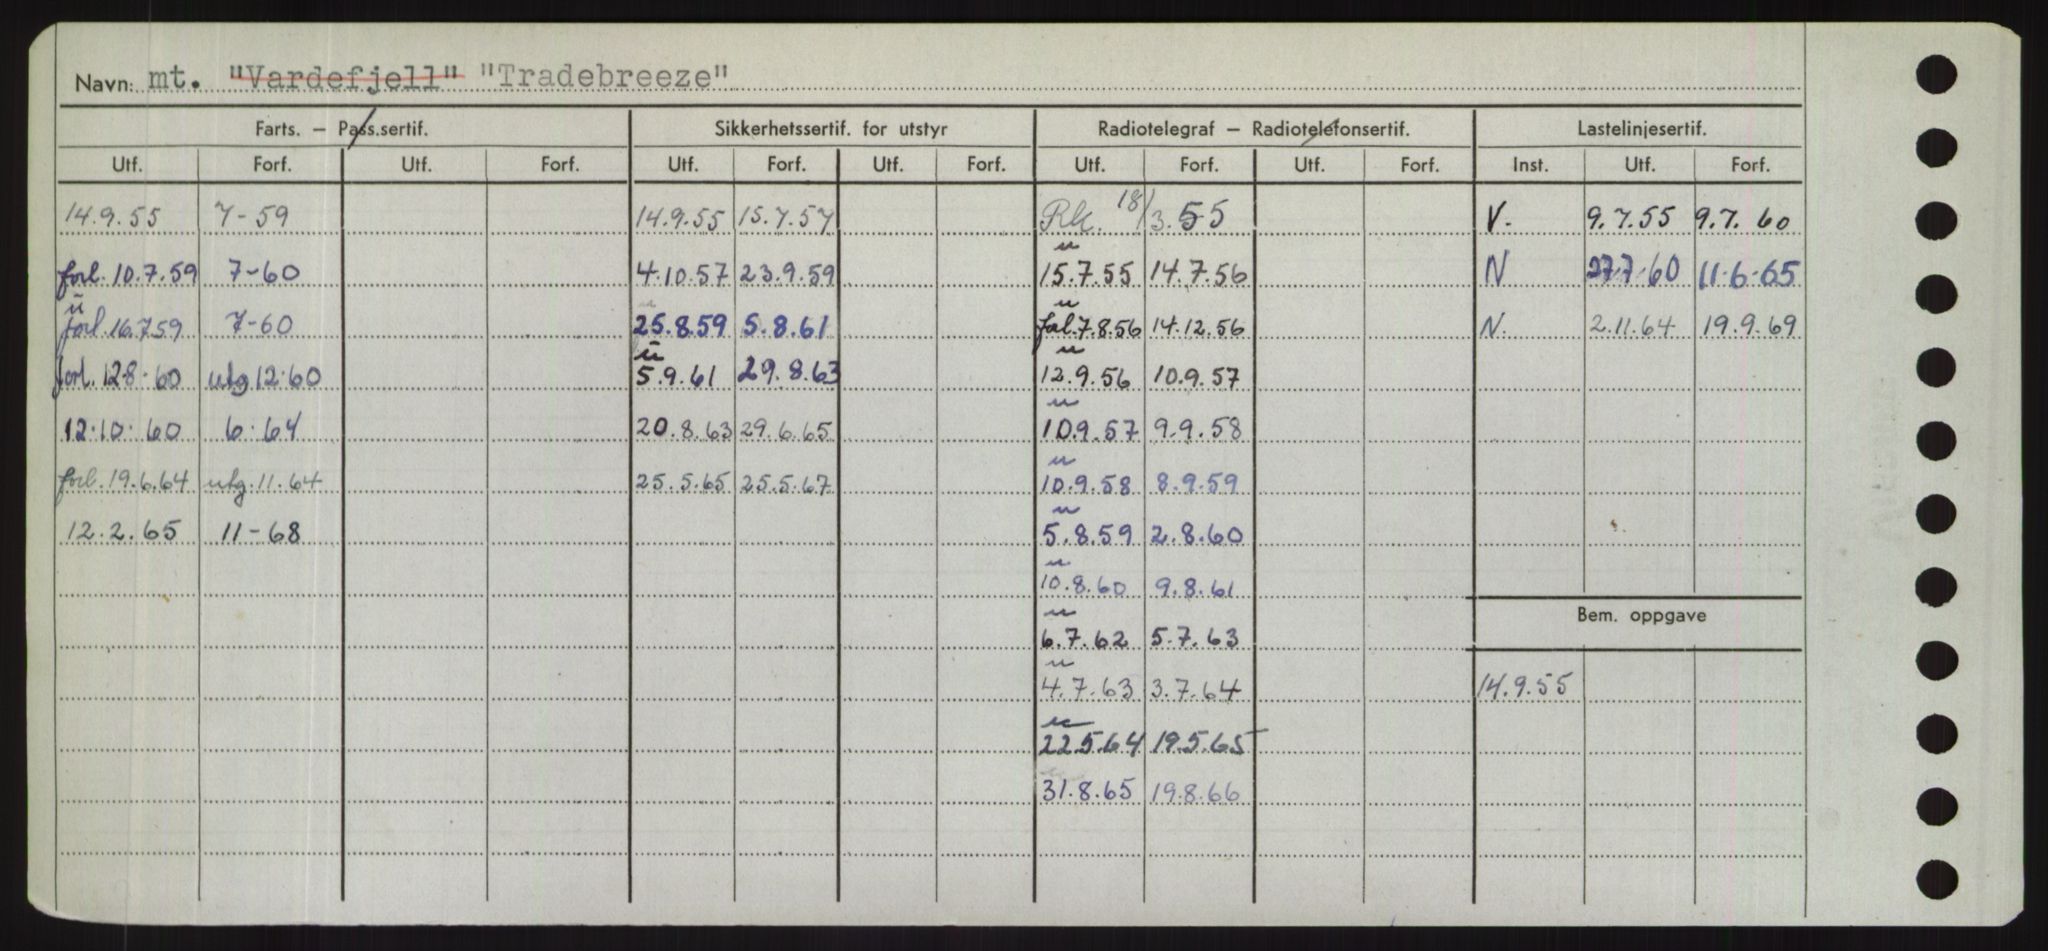 Navn: mt. "Vardefjell" "Tradebreeze"
Farts. – Pass.sertif. Sikkerhetssertif. for utstyr Radiotelegraf – Radiotelefonsertif. Lastelinjesertif.
Utf. Forf. Utf. Forf. Utf. Forf. Utf. Forf. Utf. Forf. Utf. Forf. Inst. Utf. Forf.
14.9.55 7-59 14.9.55 15.7.57 Rk. 18/3.55 V. 9.7.55 9.7.60
u
forl. 10.7.59 7-60 4.10.57 23.9.59 15.7.55 14.7.56 N 27.7.60 11.6.65
ü u
forl. 16.7.59 7-60 25.8.59 5.8.61 forl. 7.8.56 14.12.56 N. 2.11.64 19.9.69
ü u
forl. 12.8.60 utg 12.60 5.9.61 29.8.63 12.9.56 10.9.57
u
12.10.60 6.64 20.8.63 29.6.65 10.9.57 9.9.58
u
forl. 19.6.64 utg. 11.64 25.5.65 25.5.67 10.9.58 8.9.59
u
12.2.65 11-68 5.8.59 2.8.60
u
10.8.60 9.8.61
Bem. oppgave
u
6.7.62 5.7.63
u
4.7.63 3.7.64 14.9.55
u
22.5.64 19.5.65
31.8.65 19.8.66